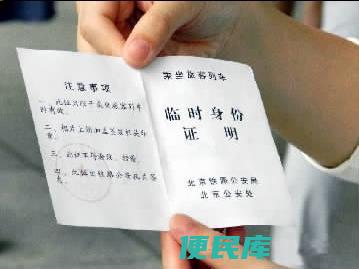 注意事项
一、此证只限于乘坐旅客列车
时有效。
二、相片上须加盖签发机关印
章。
三、此证不得涂改、转借。
四、此证由铁路公安机关签
发。
乘坐旅客列车
临时身份
证明
北京铁路公安局
北京公安处
便民库